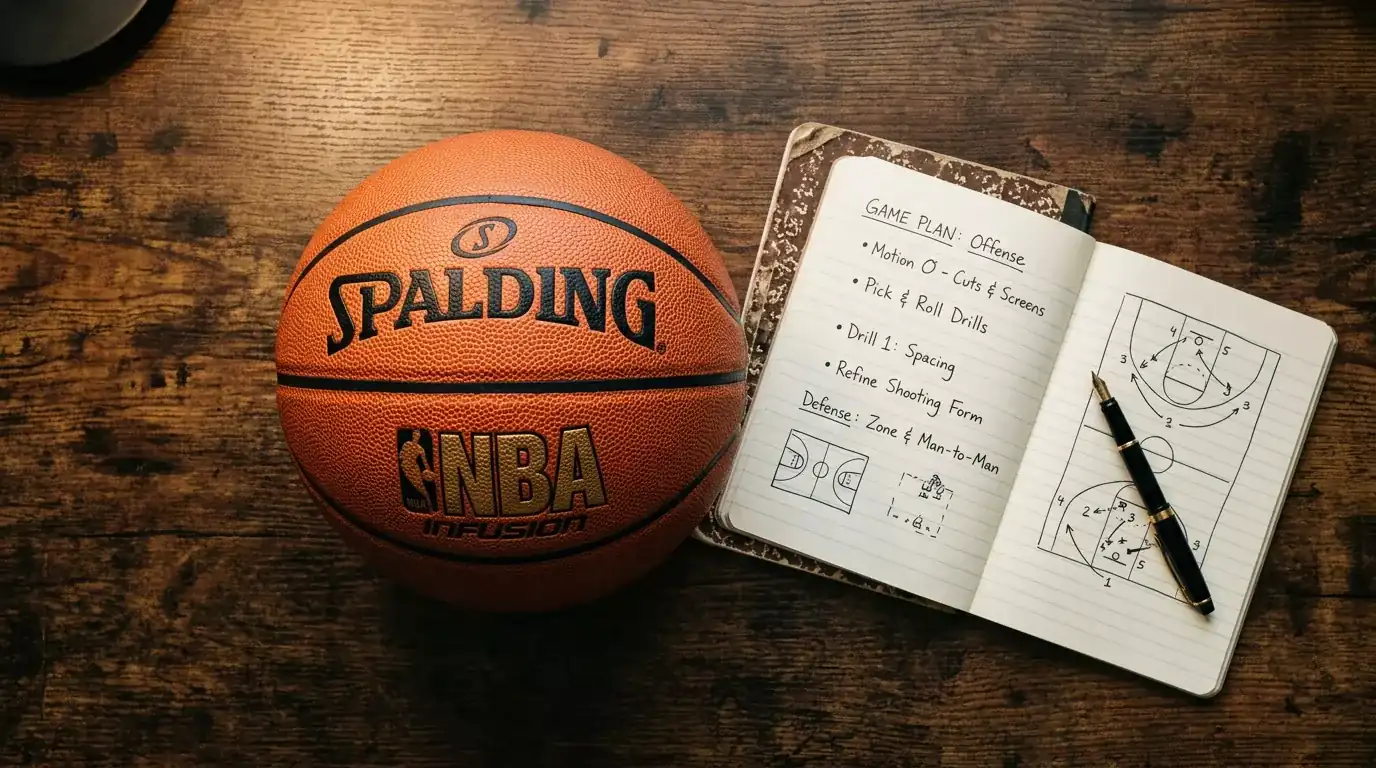 S
SPALDING®
NBA
INFUSION
GAME PLAN: Offense
• Motion O - Cuts & Screens
• Pick & Roll Drills
• Drill 1: Spacing
• Refine Shooting Form
Defense: Zone & Man-to-Man
4
5
3
3
2
4
2
3
5
1